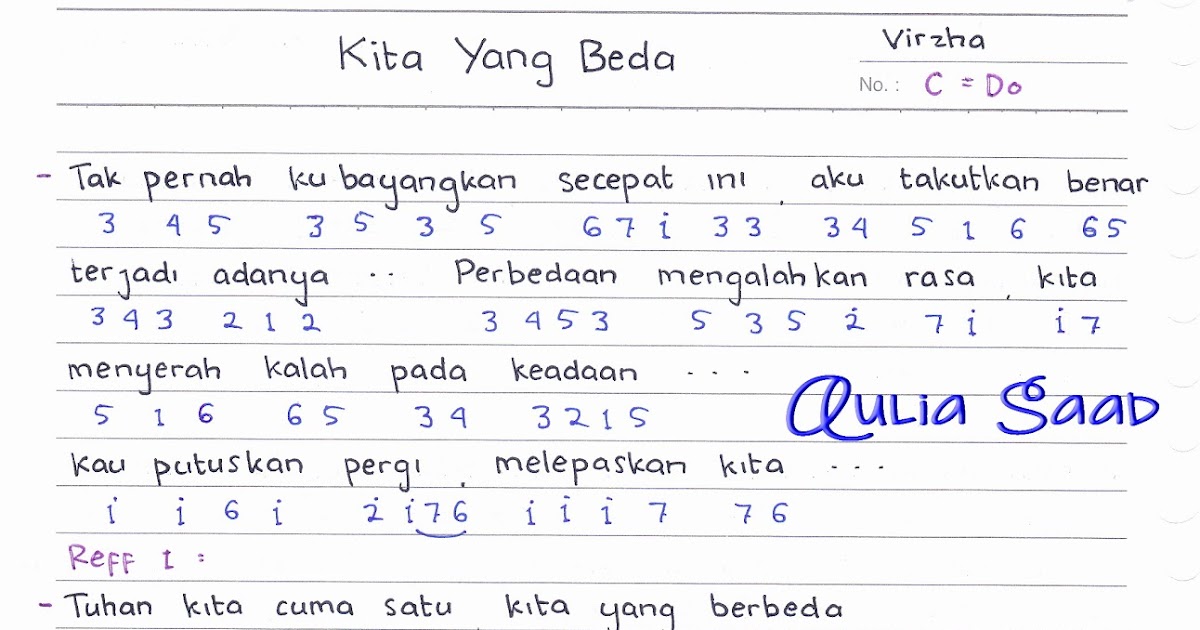 Kita Yang Beda
Virzha
No. : C = Do
- Tak pernah ku bayangkan secepat ini, aku takutkan benar
3 4 5 3 5 3 5 6 7 i 3 3 3 4 5 1 6 6 5
terjadi adanya .. Perbedaan mengalahkan rasa, kita
3 4 3 2 1 2 3 4 5 3 5 3 5 2̇ 7 i i 7
menyerah kalah pada keadaan ...
5 1 6 6 5 3 4 3 2 1 5
Qulia Saad
kau putuskan pergi, melepaskan kita ...
i i 6 i 2̇ i 7 6 i i i 7 7 6
Reff I :
- Tuhan kita cuma satu kita yang berbeda